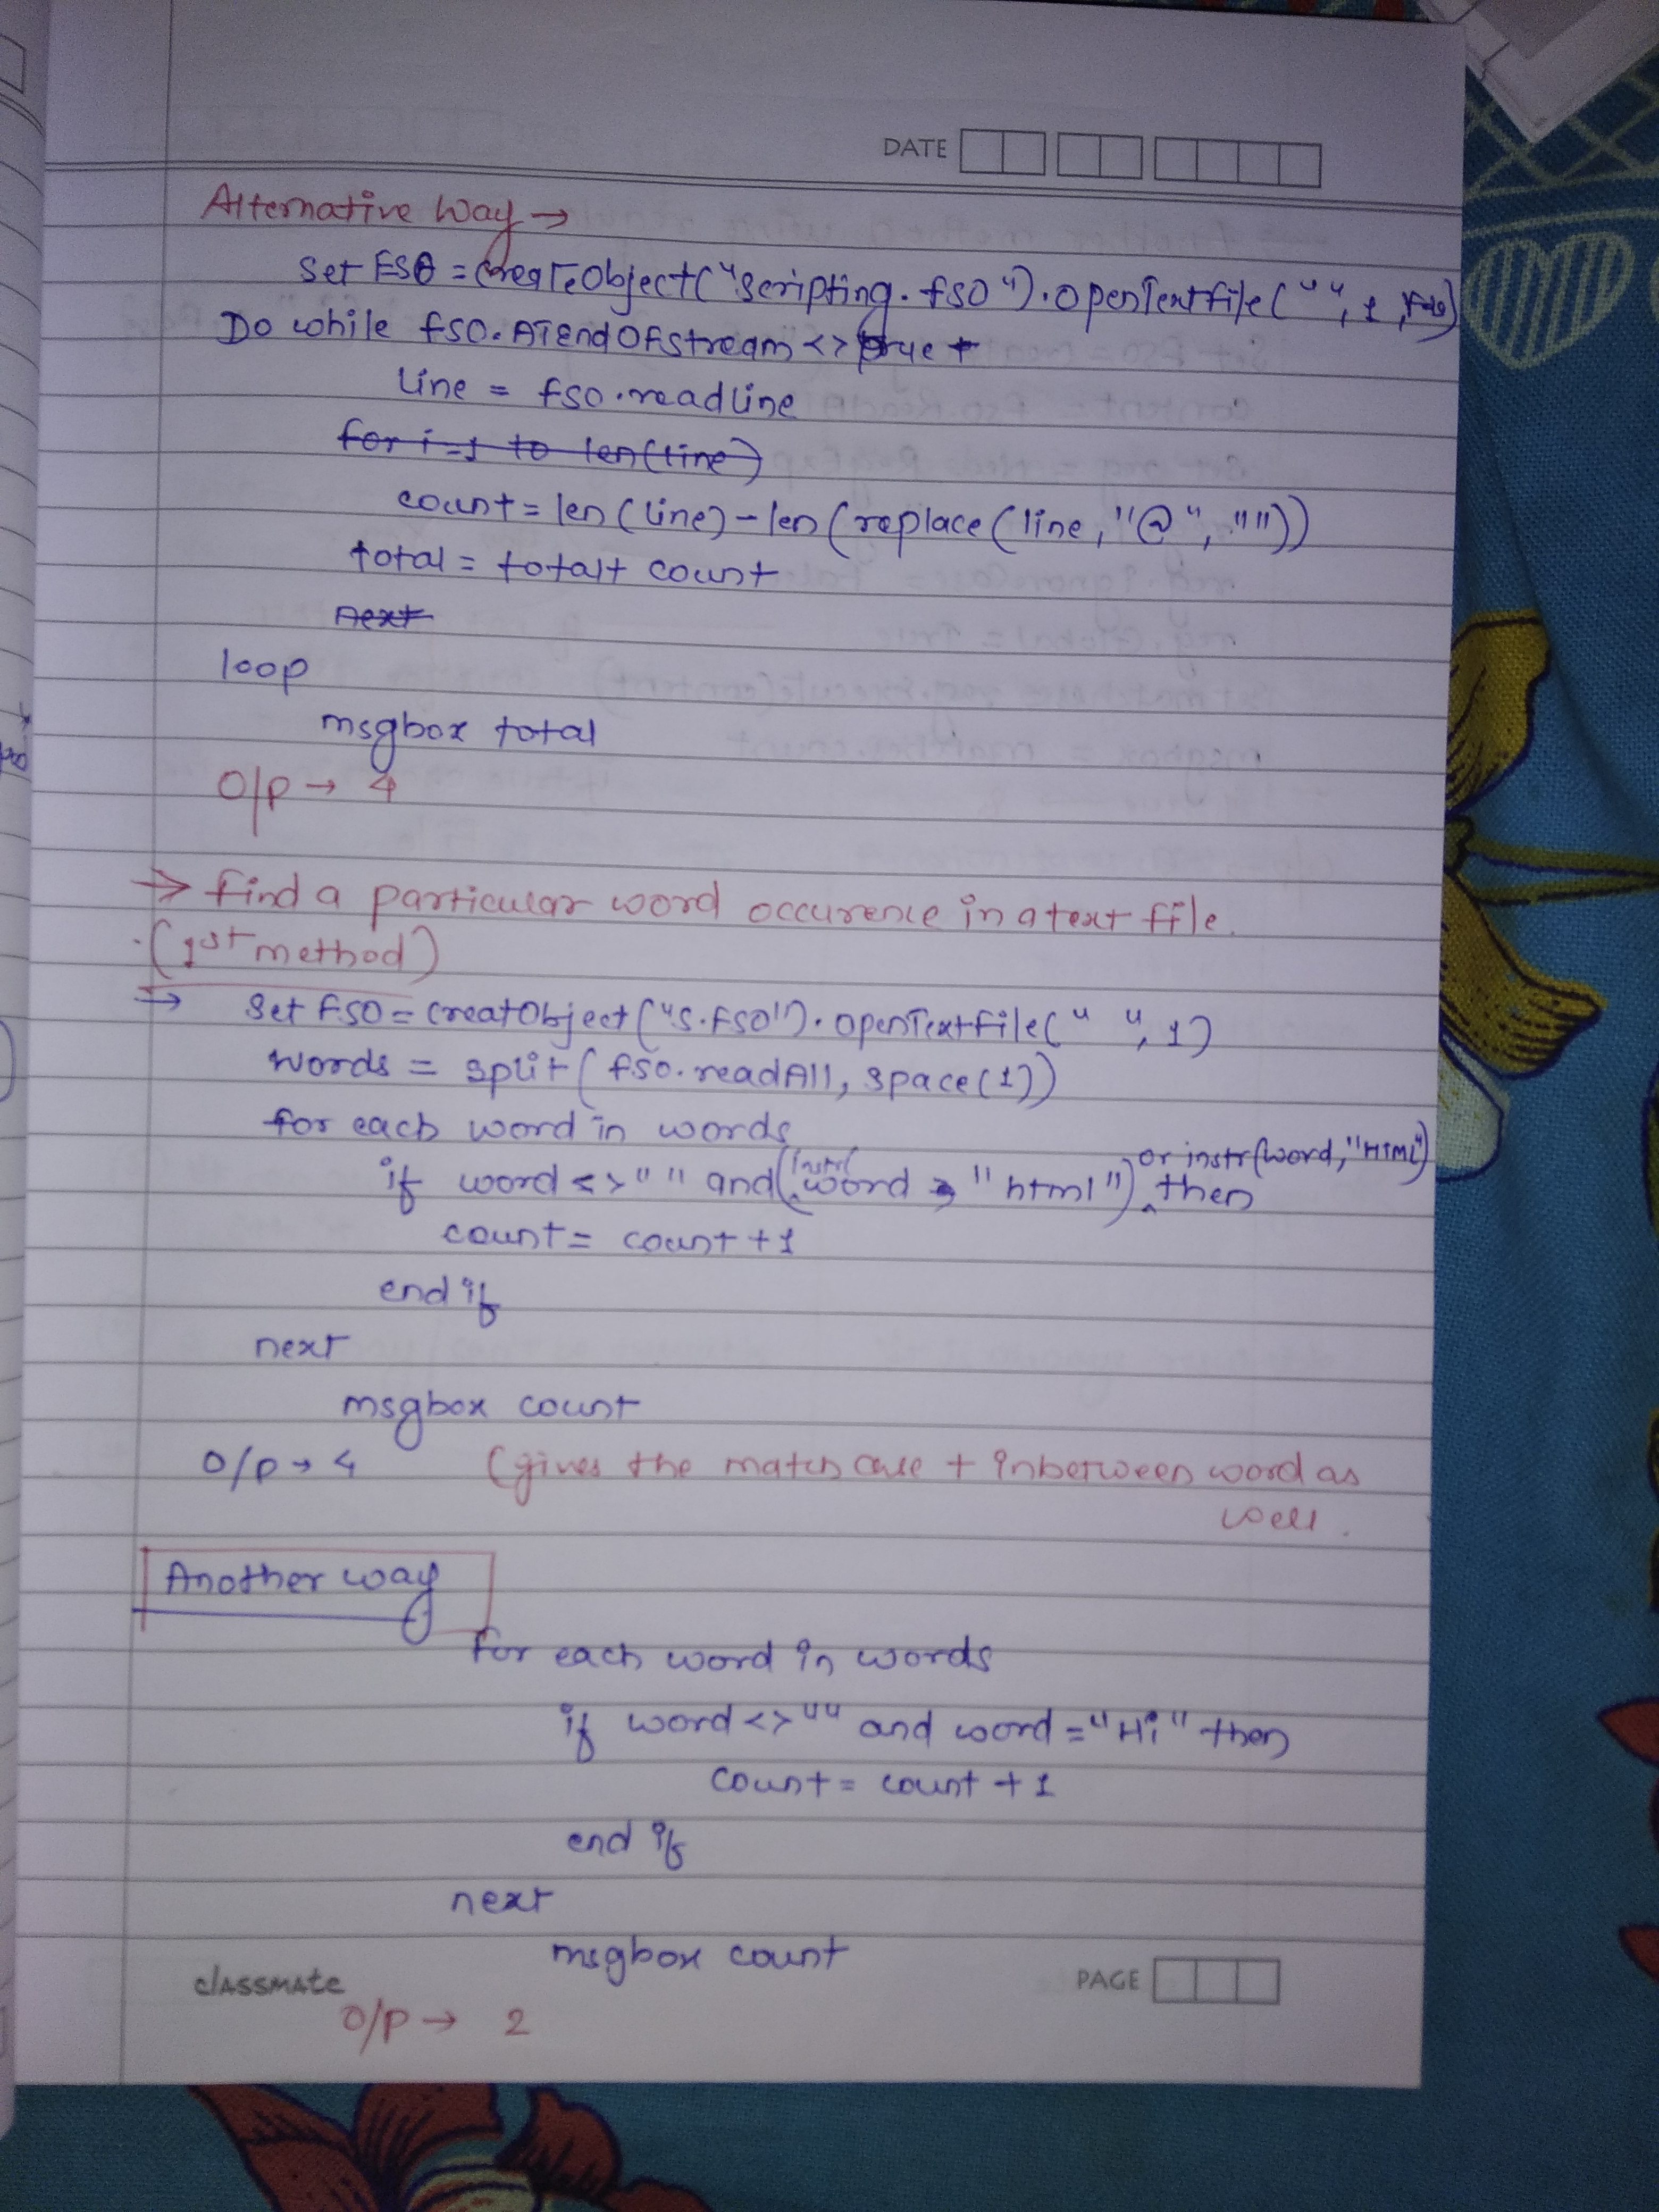 DATE
Alternative Way →
Set FSO = CreateObject("Scripting.fso").OpenTextfile("", 1,
Do while fso.AtEndOfStream <> true
Line = fso.readline
for i=1 to len(line)
count = len(line) - len(replace(line, "@", ""))
total = total + count
next
loop
msgbox total
O/p → 4
→ find a particular word occurence in a text file.
(1st method)
→ Set FSO = CreatObject("S.FSO").OpenTextfile(" ", 1)
words = split(fso.readAll, space(1))
for each word in words
if word <> "" and (instr(word, "html") or instr(word, "HTML") then
count = count + 1
end if
next
msgbox count
O/p → 4 (gives the match case + inbetween word as
well.
Another way
for each word in words
if word <> "" and word = "Hi" then
count = count + 1
end if
next
msgbox count
classmate PAGE
O/P → 2